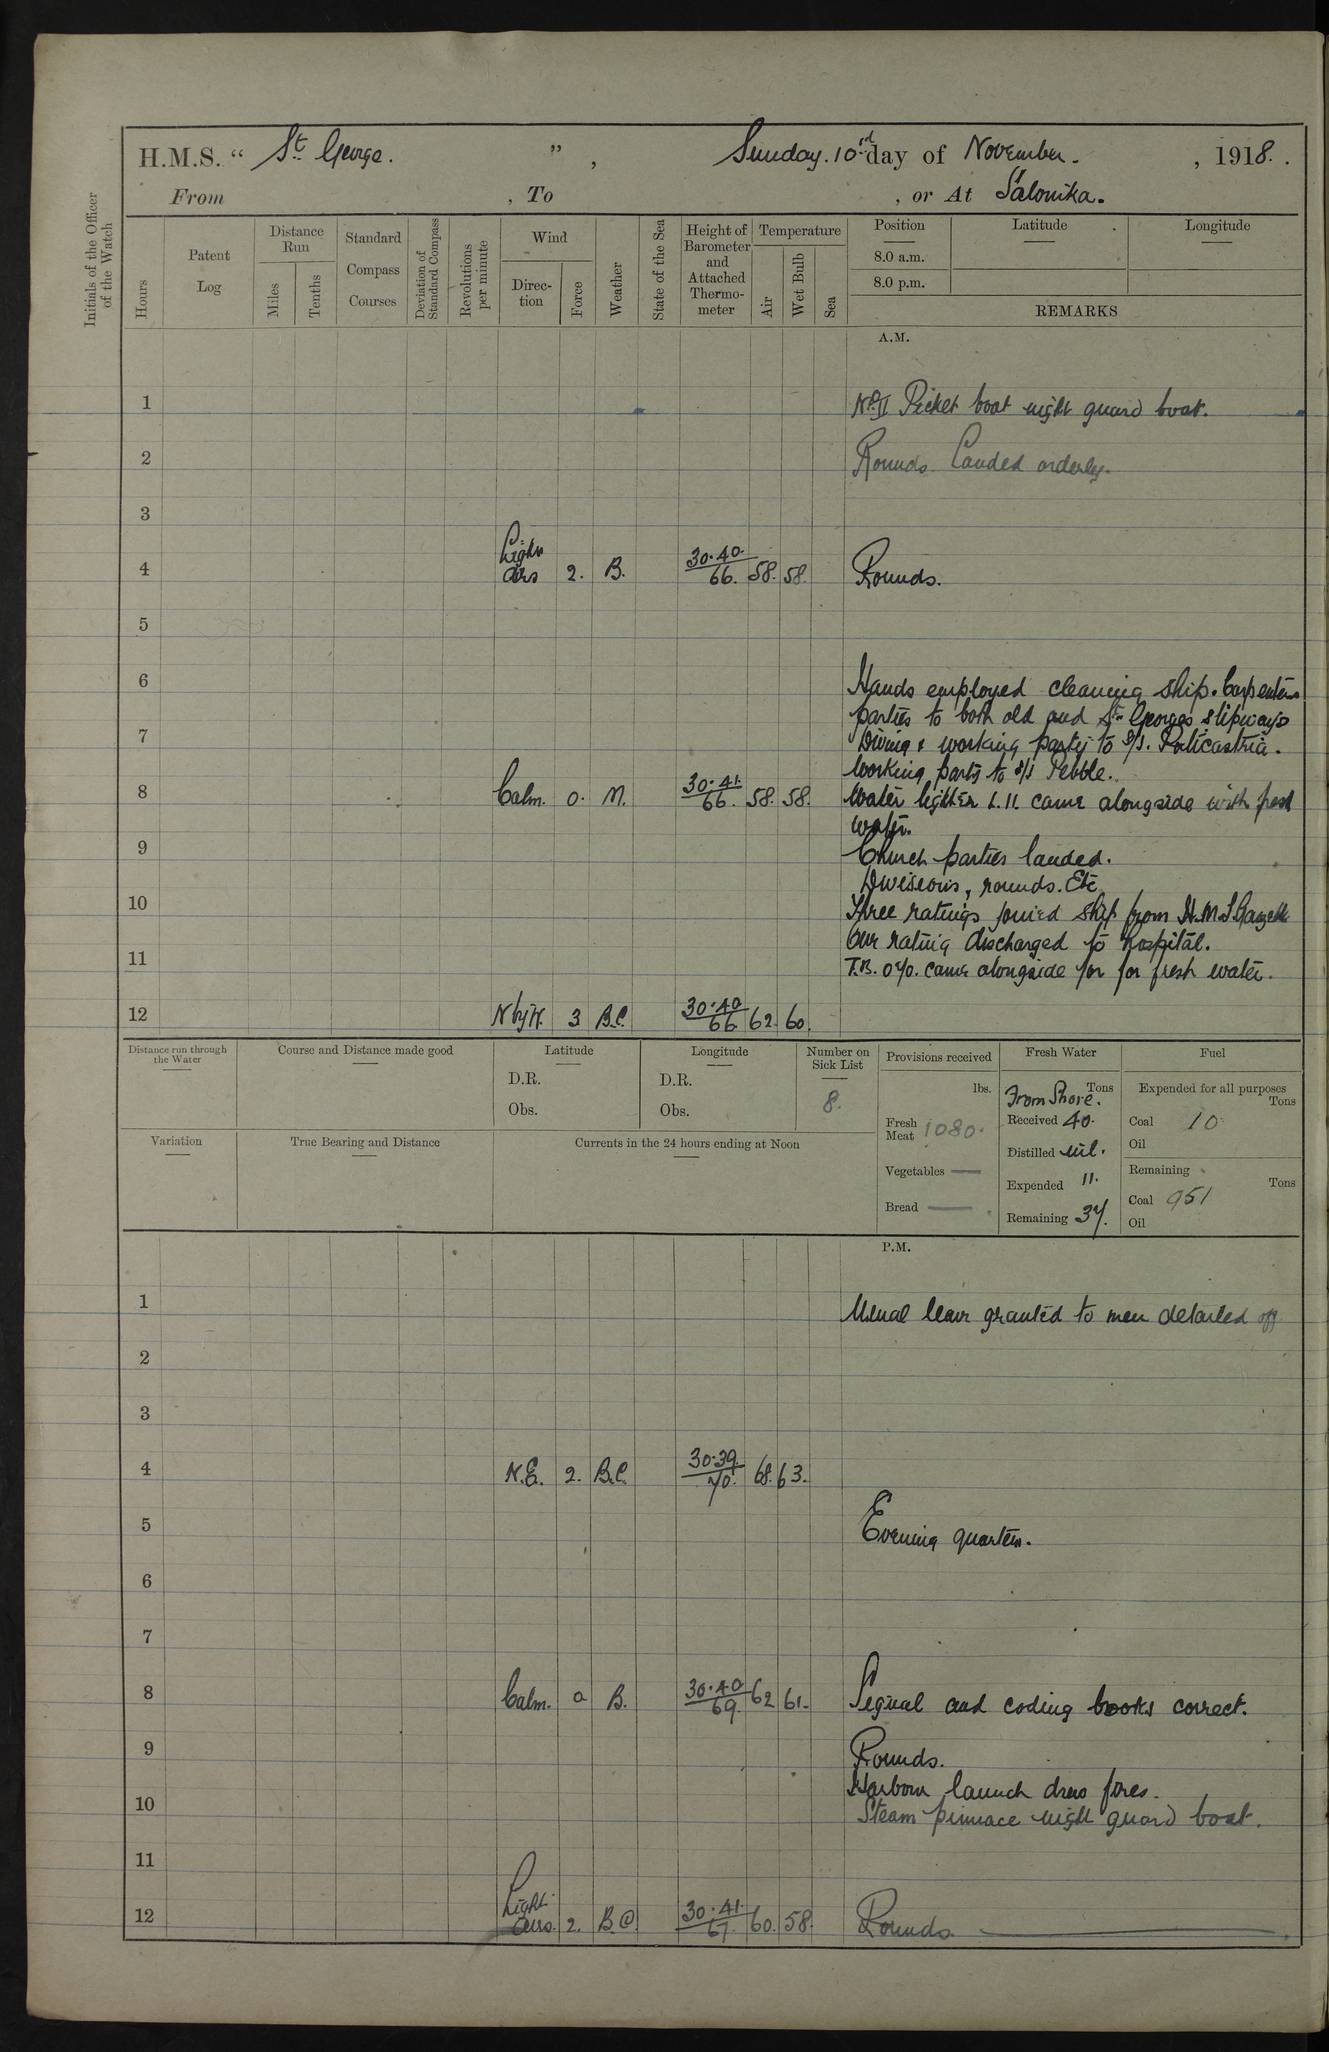 H.M.S. “ St. George. ” , Sunday. 10 day of November. , 1918.
From , To , or At Salonika.
Initials of the Officer of the Watch
Hours
Patent Log
Distance Run
Miles
Tenths
Standard Compass Courses
Deviation of Standard Compass
Revolutions per minute
Wind
Direction
Force
Weather
State of the Sea
Height of Barometer and Attached Thermometer
Temperature
Air
Wet Bulb
Sea
Position
Latitude
Longitude
8.0 a.m.
8.0 p.m.
REMARKS
A.M.
1 No II Picket boat night guard boat.
2 Rounds Landed orderly.
3
4 Light airs 2. B. 30.40. 66. 58. 58. Rounds.
5
6 Hands employed cleaning ship. Carpenters
parties to both old and St Georges slipways
7 Diving & working party to S/S.
Working party to S/S Pebble.
8 Calm. 0. M. 30.41. 66. 58. 58. Water lighter L.11. came alongside with fresh
water.
9 Church parties landed.
Divisions, rounds. Etc
10 Three ratings joined ship from H.M.S Gazelle
One rating discharged to hospital.
11 T.B. 070. came alongside for for fresh water.
12 N by W. 3 B.C. 30.40 66 62. 60.
Distance run through the Water
Course and Distance made good
Latitude
D.R.
Obs.
Longitude
D.R.
Obs.
Number on Sick List
8.
Provisions received
lbs.
Fresh Meat 1080.
Vegetables —
Bread —
Fresh Water
Tons
From Shore.
Received 40.
Distilled nil.
Expended 11.
Remaining 37.
Fuel
Expended for all purposes
Tons
Coal 10
Oil
Remaining
Tons
Coal 951
Oil
Variation
True Bearing and Distance
Currents in the 24 hours ending at Noon
P.M.
1 Usual leave granted to men detailed off
2
3
4 N.E. 2. B.C. 30.39. 70. 68. 63.
5 Evening quarters.
6
7
8 Calm. 0 B. 30.40 69. 62 61. Signal and coding books correct.
9 Rounds.
Harbour launch drew fires.
10 Steam pinnace night guard boat.
11
12 Light airs. 2. B.C. 30.41. 67. 60. 58. Rounds